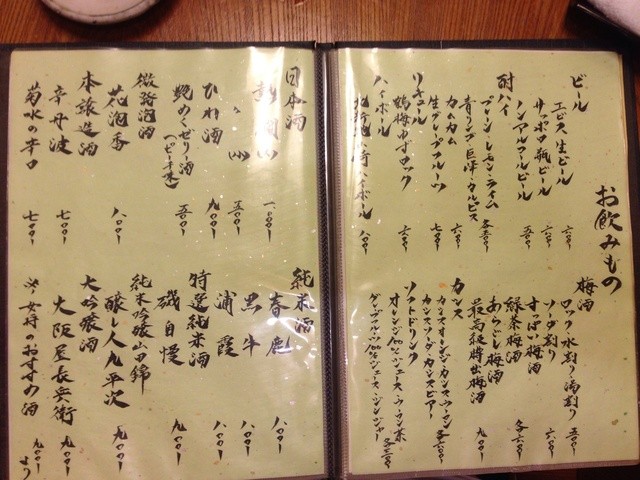 お飲みもの
ビール
エビス生ビール 六〇〇
サッポロ瓶ビール 六〇〇
ノンアルコールビール 五〇〇
酎ハイ
プレーン・レモン・ライム
青リンゴ・巨峰・カルピス 各五〇〇
カムカム 六〇〇
生グレープフルーツ 七〇〇
リキュール
鶴梅ゆずロック 六〇〇
ハイボール
ハイボール 八〇〇
梅酒
ロック・水割り・湯割り 五〇〇
ソーダ割り 六〇〇
すっぱい梅酒
緑茶梅酒
あらごし梅酒 各六〇〇
最高級蜂出梅酒 九〇〇
カシス
カシスオレンジ・カシスウーロン
カシスソーダ・カシスビアー 各六〇〇
ソフトドリンク
オレンジ100%ジュース・ウーロン茶
グレープフルーツ100%ジュース・ジンジャー 各三〇〇
日本酒
一、〇〇〇
五〇〇
ひれ酒 九〇〇
艶めくゼリー酒
(ピーチ味) 五〇〇
微発泡酒
花泡香 八〇〇
本醸造酒
辛丹波 七〇〇
菊水の辛口 七〇〇
純米酒
春鹿 八〇〇
黒牛 八〇〇
浦霞 八〇〇
特選純米酒
磯自慢 九〇〇
純米吟醸山田錦
醸し人九平次 九〇〇
大吟醸酒
大阪屋長兵衛 九〇〇
女将のおすすめ酒 九〇〇より